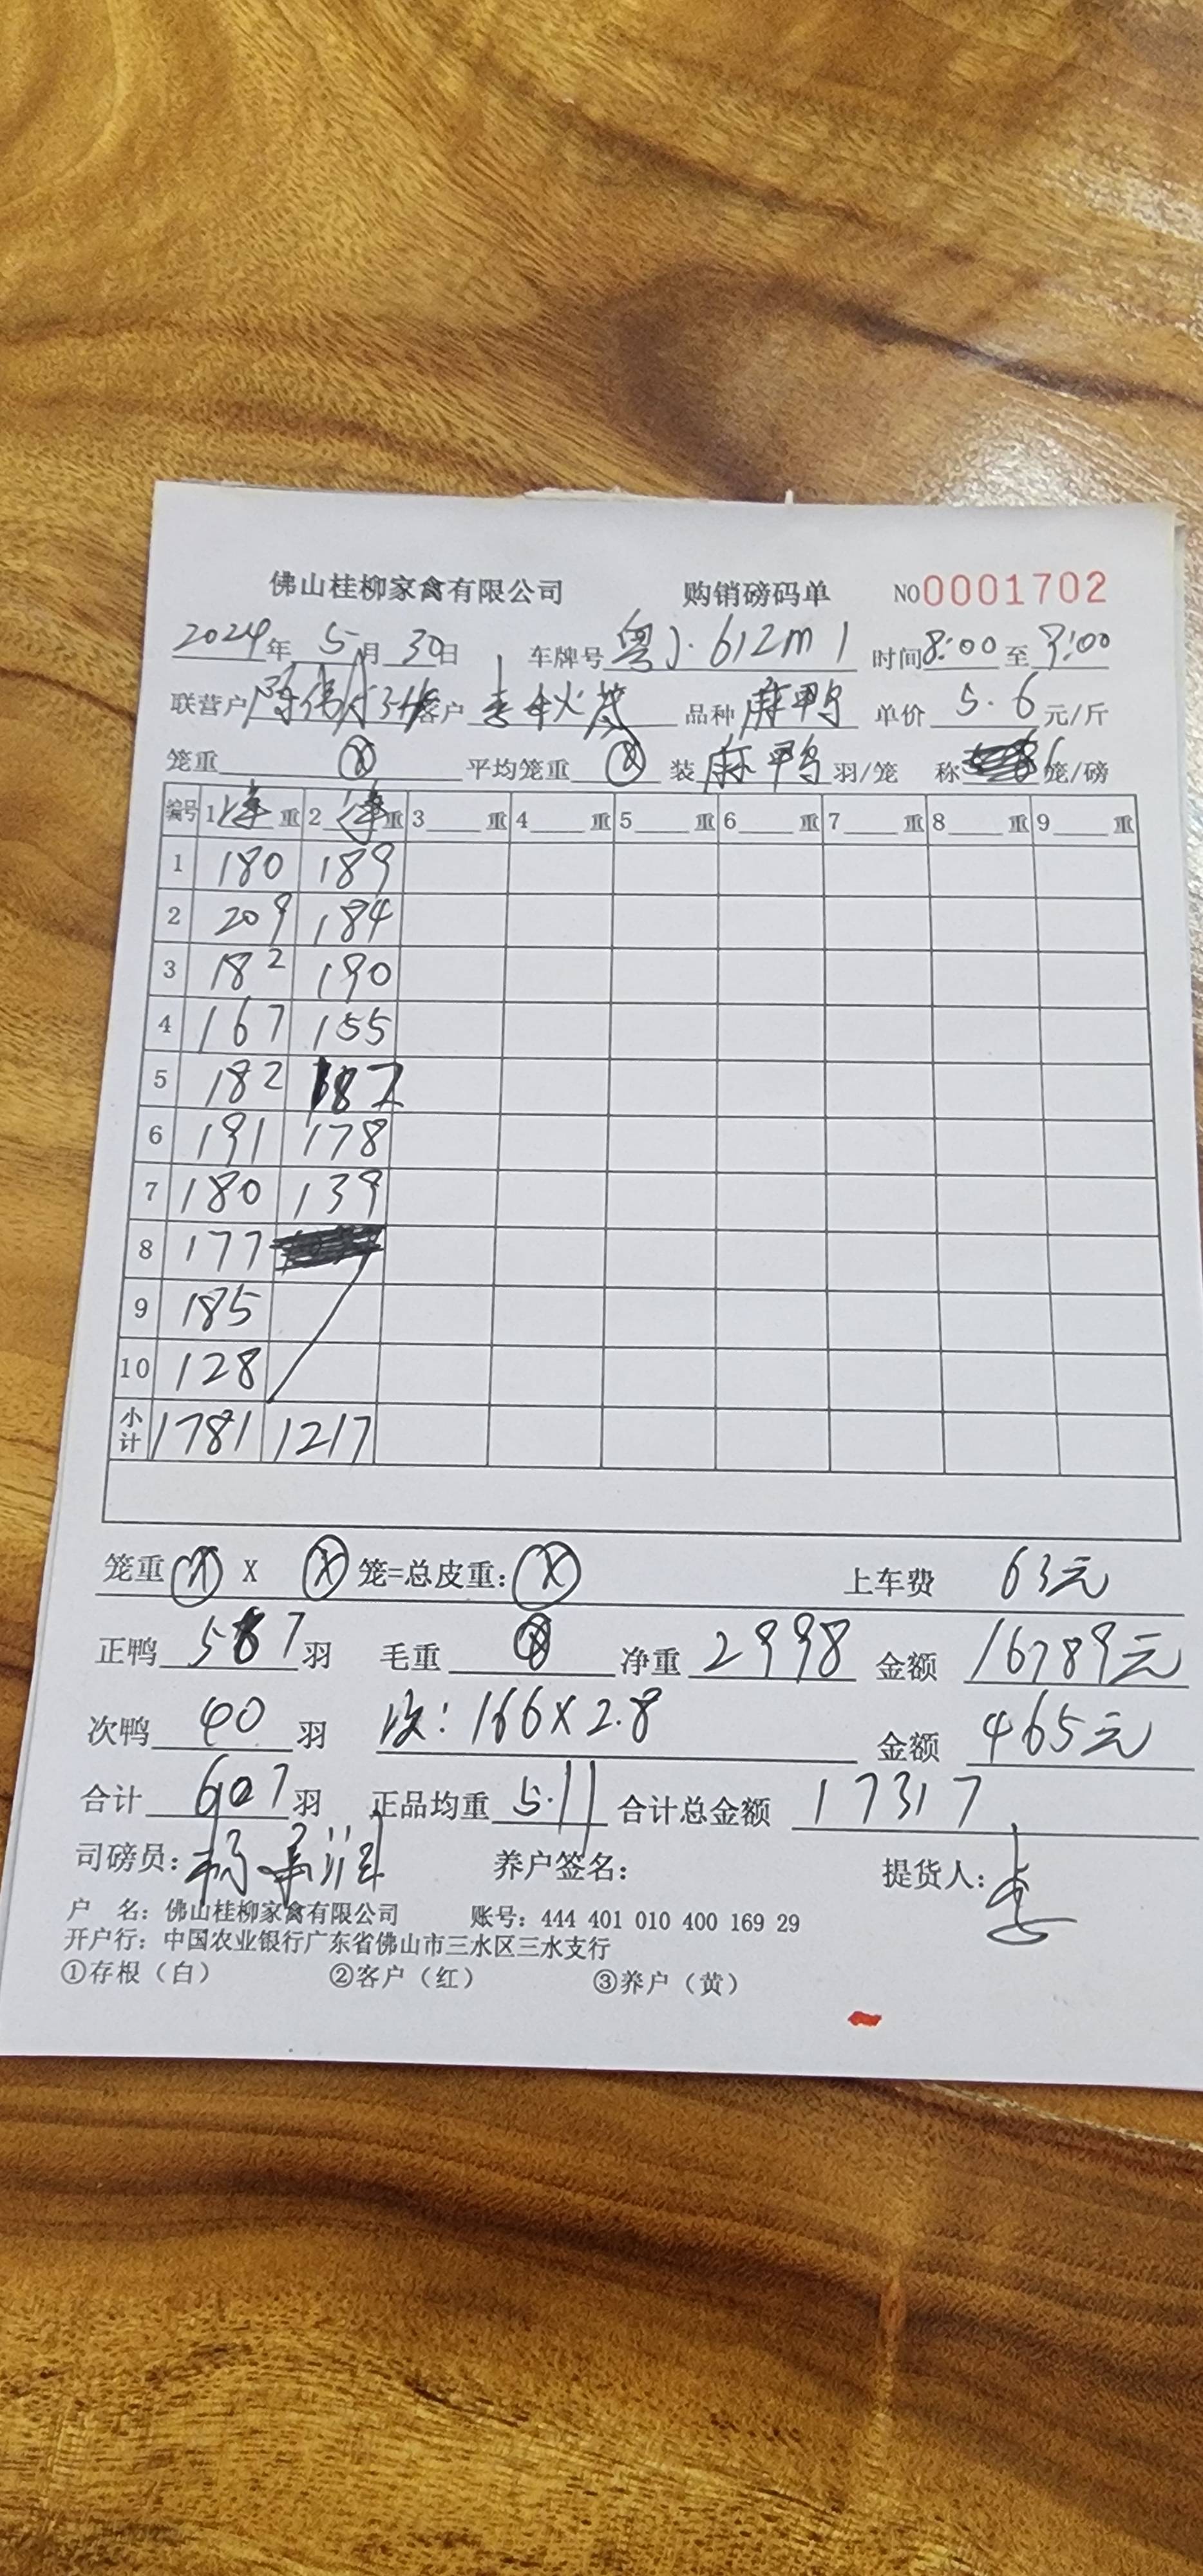 佛山桂柳家禽有限公司 购销磅码单 NO0001702
2024年 5月 30日 车牌号 粤J·612m1 时间8:00至9:00
联营户 客户 品种 麻鸭 单价 5.6 元/斤
笼重 ⓧ 平均笼重 ⓧ 装 麻鸭 羽/笼 称 6 笼/磅
编号 1 净 重 2 净 重 3 重 4 重 5 重 6 重 7 重 8 重 9 重
1 180 189
2 209 184
3 182 190
4 167 155
5 182 182
6 191 178
7 180 139
8 177
9 185
10 128
小计 1781 1217
笼重 ⓧ X ⓧ 笼=总皮重: ⓧ 上车费 63元
正鸭 587 羽 毛重 ⓧ 净重 2998 金额 16789元
次鸭 40 羽 次: 166X2.8 金额 465元
合计 羽 正品均重 5.11 合计总金额 17317
司磅员: 养户签名: 提货人: 李
户 名: 佛山桂柳家禽有限公司 账号: 444 401 010 400 169 29
开户行: 中国农业银行广东省佛山市三水区三水支行
①存根（白） ②客户（红） ③养户（黄）